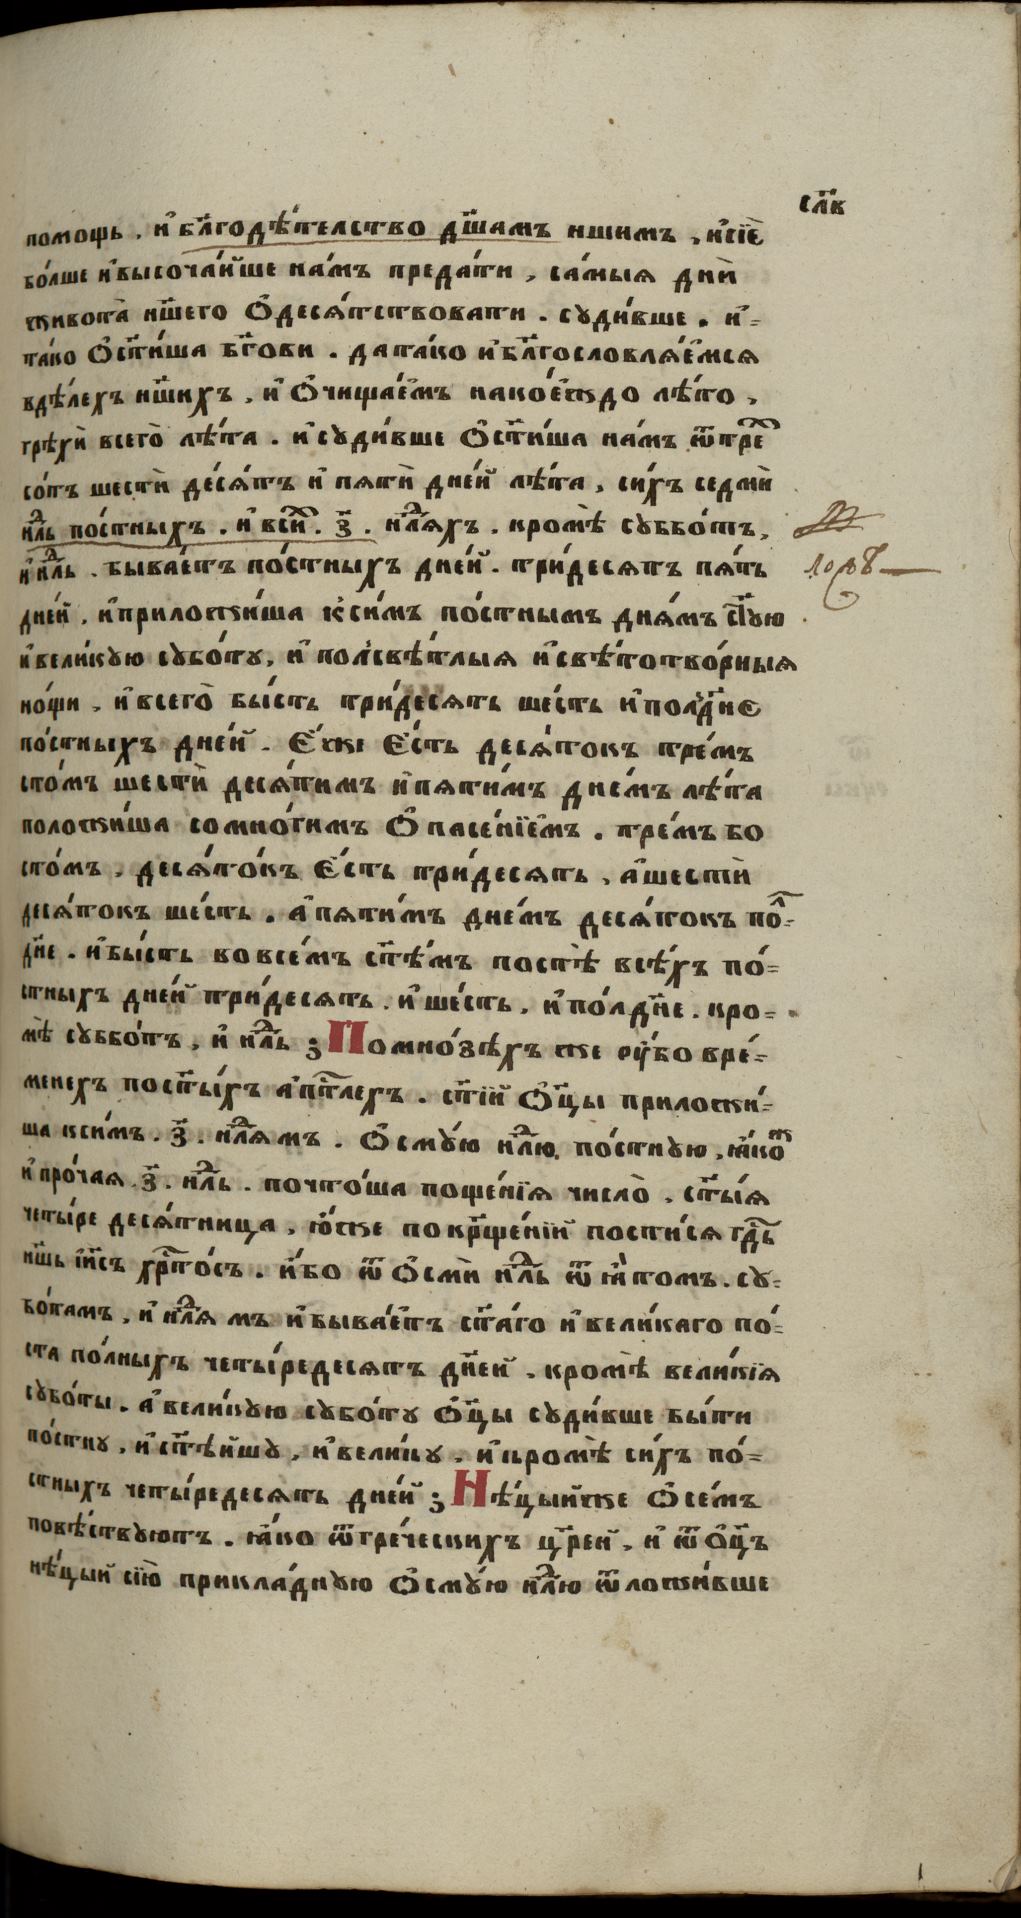 сл҃в
помощь . и҆ бл҃годѣ́тельство дш҃амъ нш҃имъ , и҆ сїѐ
бо́лше и҆ высоча́йше на́мъ преда́ти , са́мыя днѝ
живота̀ нш҃его ѽдеся́тствовати . суди́вше . и҆=
та́ко ѽст҃и́ша бг҃ови . да та́ко и҆ бл҃гословля́емся
в дѣ́лехъ нш҃ихъ , и҆ ѽчища́емъ на кое́ждо лѣ́то ,
грѣхѝ всего̀ лѣ́та . и҆ суди́вше ѽст҃и́ша на́мъ ѿ тре́х
со́тъ шестѝ деся́тъ и҆ пятѝ дне́й лѣ́та , си́хъ седмѝ
нд҃ль по́стныхъ . и҆ в си́х . з҃ . нд҃ляхъ . кромѣ̀ суббо́тъ ,
и҆ нд҃ль . быва́етъ по́стныхъ дне́й . три́десятъ пя́ть
дне́й , и҆ приложи́ша к си́мъ по́стнымъ дня́мъ ст҃ую
и҆ вели́кую субо́ту , и҆ пол̾свѣ́тлыя и҆ свѣ́тотво́рныя
но́щи , и҆ всего̀ бы́сть три́десять ше́сть и҆ пол̾дн҃е
по́стныхъ дне́й . є҆́же є҆́сть деся́токъ тре́мъ
сто́мъ шестѝ деся́тимъ и҆ пяти́мъ дне́мъ лѣ́та
положи́ша со мно́гимъ ѽпасе́нїемъ . тре́мъ бо
сто́мъ , деся́то́къ є҆́сть три́десять , а҆ шестѝ
деся́токъ ше́сть . а҆ пяти́мъ дне́мъ деся́токъ по́л=
дн҃е . и҆ бы́сть во все́мъ ст҃ѣ́мъ постѣ̀ всѣ́хъ по́=
стныхъ дне́й три́десять . и҆ ше́сть , и҆ по́лдн҃е . кро=
мѣ̀ суббо́тъ , и҆ нд҃ль ; По мно́зѣхъ же оу҆́бо вре́=
менехъ по ст҃ы́хъ а҆пⷭ҇лехъ . ст҃і́й ѻ҆ц҃ы приложи́=
ша к си́мъ . з҃ . нд҃лямъ . ѻ҆сму́ю нд҃лю по́стную , ꙗ҆́коⷤ
и҆ про́чая . з҃ . нд҃ль . почто́ша поще́нїя число̀ , ст҃ы́я
четы́ре деся́тница , ю҆́же по крⷭ҇ще́нїй пости́ся гдⷭ҇ь
нш҃ь і҆и҃съ хрⷭ҇то́съ . и҆́бо ѿ ѻ҆смѝ нд҃ль ѿѧ҆́томъ . су=
бо́тамъ , и҆ нд҃лямъ и҆ быва́етъ ст҃а́го и҆ вели́каго по́=
ста по́лныхъ четы́редесятъ дн҃е́й , кромѣ̀ вели́кїя
субо́ты . а҆ вели́кую субо́ту ѻ҆ц҃ы суди́вше бы́ти
по́стну , и҆ ст҃ѣ́йшу , и҆ вели́ку , и҆ кромѣ̀ си́хъ по́=
стныхъ четы́редесять дне́й ; Нѣ́цый же ѽ се́мъ
повѣ́ствуютъ . ꙗ҆́ко ѿ гре́ческихъ цр҃ей , и҆ ѿ ѻ҆ц҃ъ
нѣ́цый сїю̀ прикла́дную ѻ҆сму́ю нд҃лю ѿложи́вше